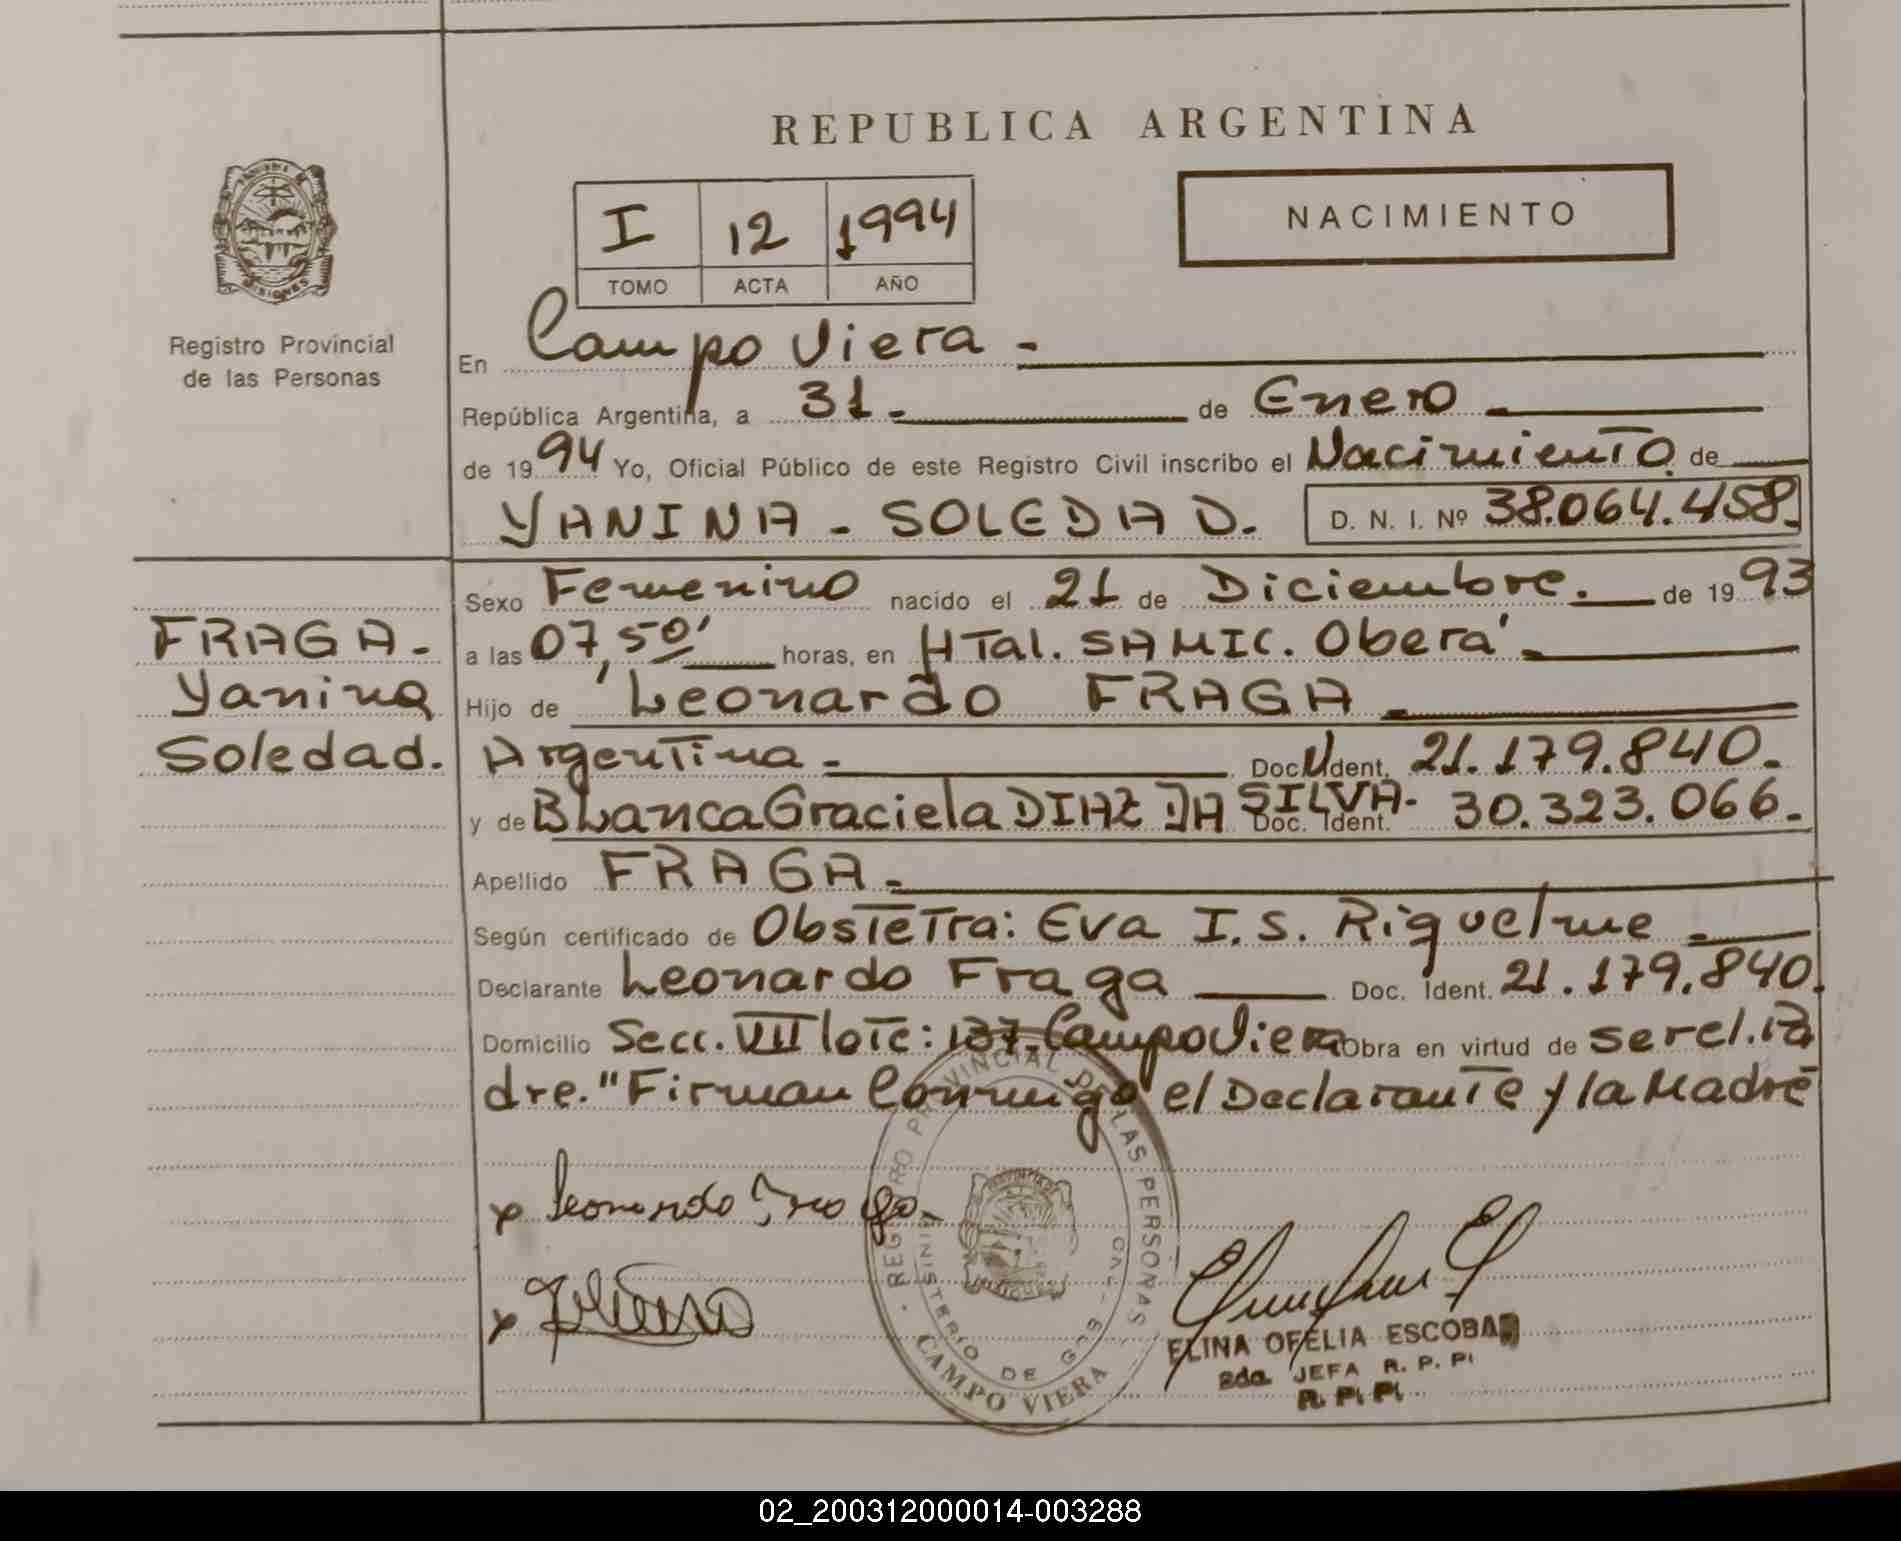 REPUBLICA ARGENTINA
I 12 1994
TOMO ACTA AÑO
NACIMIENTO
MISIONES
Registro Provincial
de las Personas
En Campo Viera -
República Argentina, a 31.- de Enero
de 1994 Yo, Oficial Público de este Registro Civil inscribo el Nacimiento de
YANINA - SOLEDAD. D. N. I. Nº 38.064.458.
FRAGA -
Yanina
Soledad.
Sexo Femenino nacido el 21 de Diciembre. de 1993
a las 07,50' horas, en HTal. SAMIC. Oberá
Hijo de Leonardo FRAGA
Argentina - Doc. Ident. 21.179.840.
y de BLanca Graciela DIAZ DA SILVA - Doc. Ident. 30.323.066.
Apellido FRAGA -
Según certificado de Obstetra: Eva I. S. Riquelme
Declarante Leonardo Fraga Doc. Ident. 21.179.840.
Domicilio Secc. VII lote: 137. Campo Viera Obra en virtud de ser el. Pa
dre. "Firman Conmigo el Declarante y la Madre
x Leonardo Fraga
x
REGISTRO PROVINCIAL DE LAS PERSONAS
MINISTERIO DE GOB
CAMPO VIERA
ELINA OFELIA ESCOBAR
2da JEFA R. P. P.
R. P. P.
02_200312000014-003288